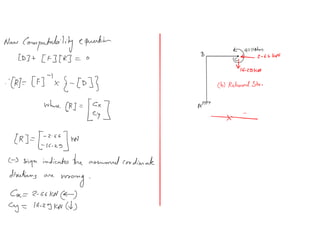 Now Compatability equation
[D] + [F][R] = 0
∴ [R] = [F]⁻¹ × {-[D]}
where [R] = [Cx
Cy]
[R] = [-2.66
-16.29] kN
(-) sign indicates the assumed coordinate
directions are wrong.
Cx = 2.66 kN (←)
Cy = 16.29 kN (↓)
B
C
2.66 kN
16.29 kN
(b) Released Str.
A